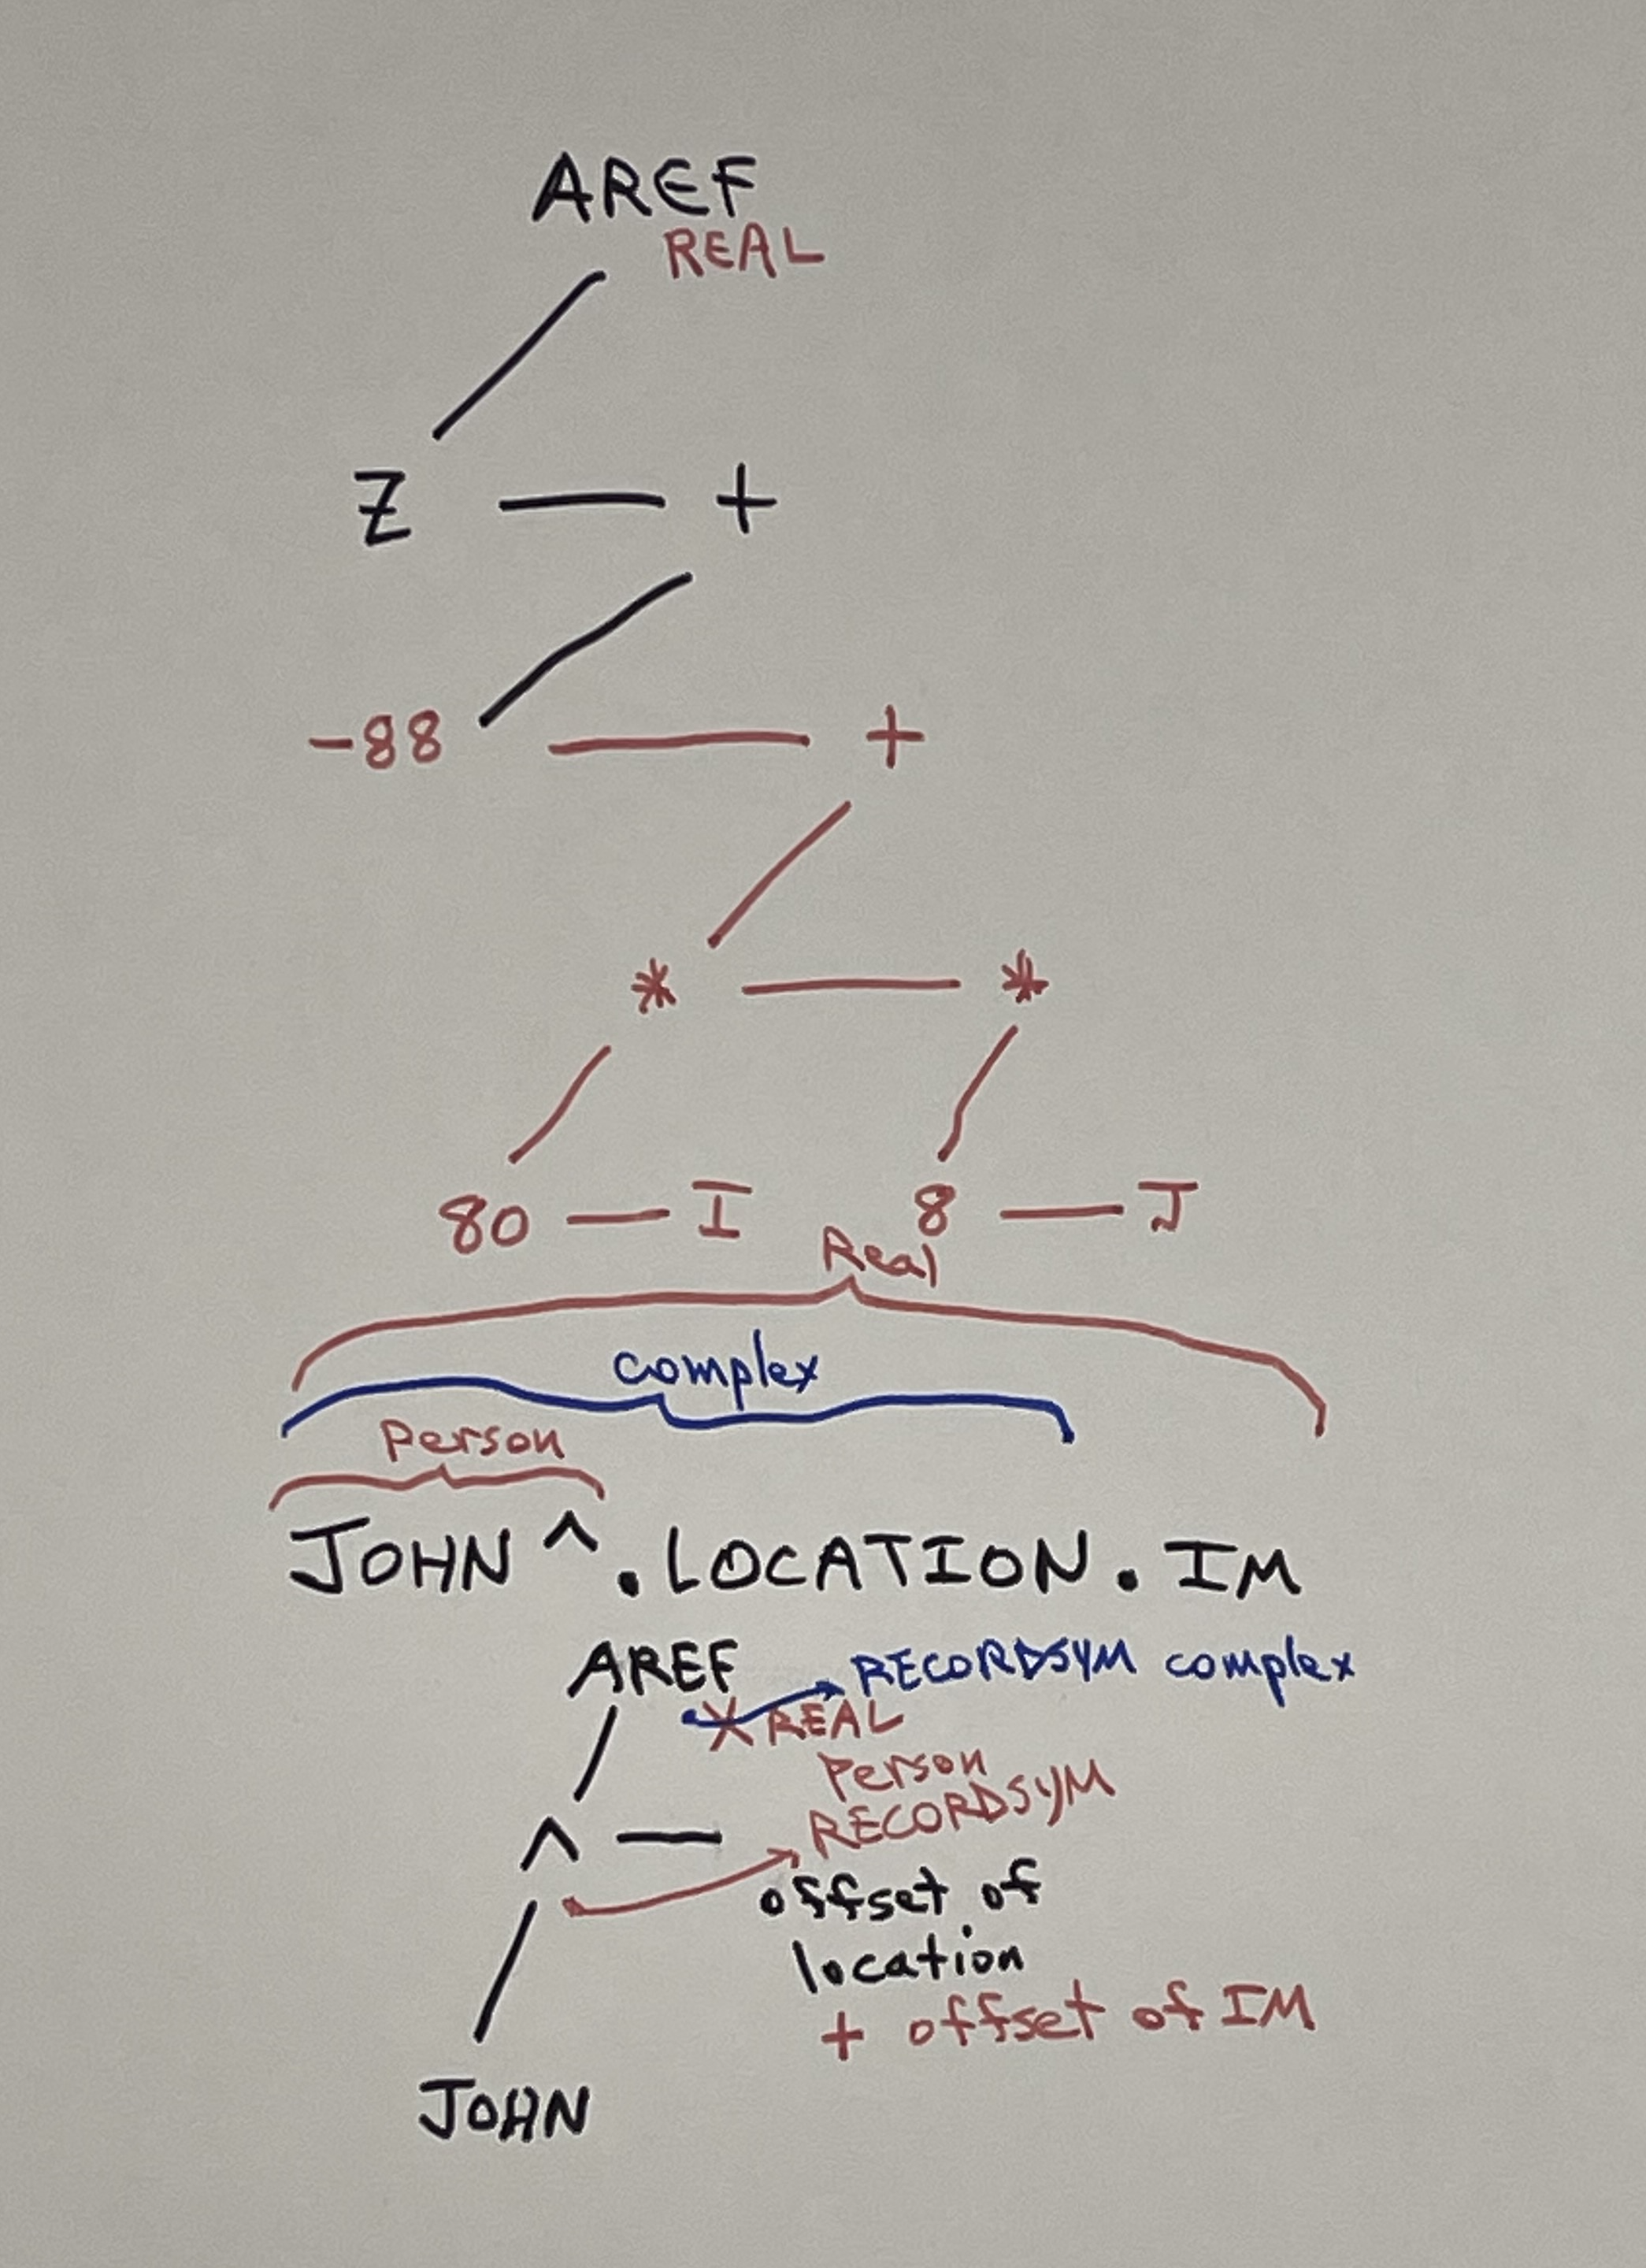 AREF
REAL
Z +
-88 +
* *
80 I 8 J
Real
complex
Person
JOHN ^ . LOCATION . IM
AREF RECORDSYM complex
REAL
Person
^ RECORDSYM
offset of
location
+ offset of IM
JOHN